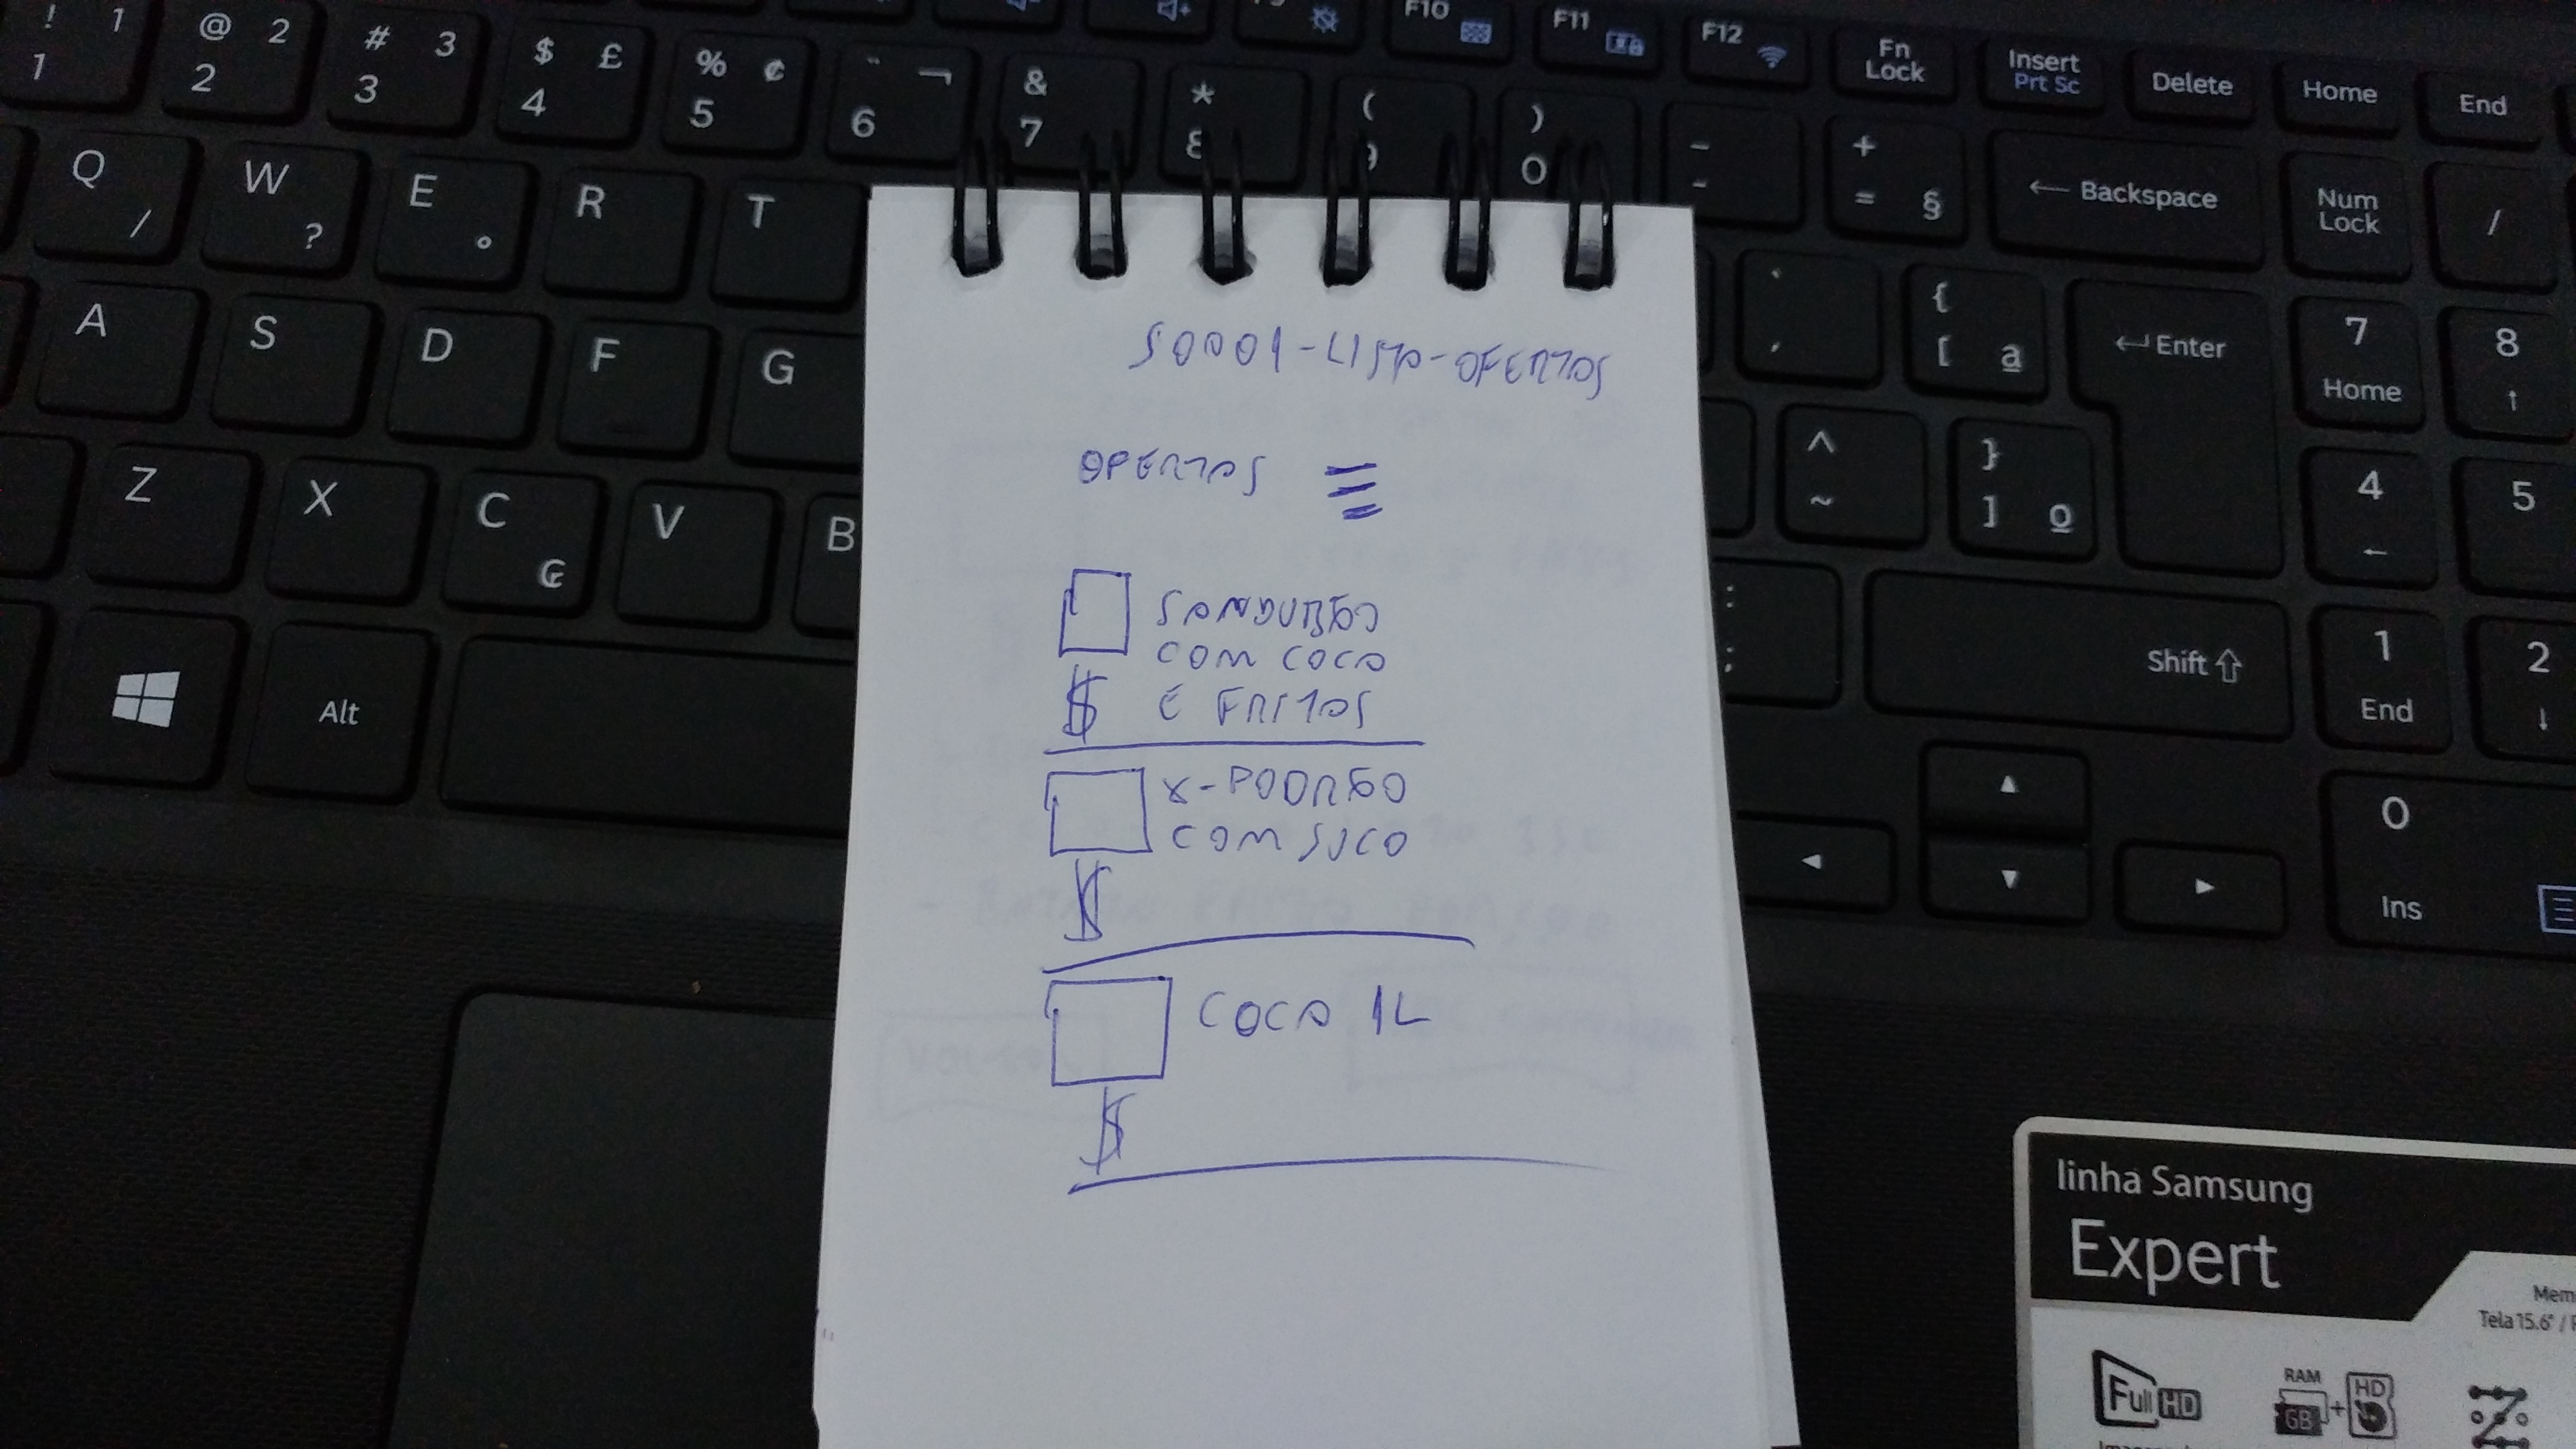 ! 1 1
@ 2 2
# 3 3
$ £ 4
% ¢ 5
¨ ¬ 6
& 7
* 8
( 9
) 0
F10
F11
F12
Fn Lock
Insert Prt Sc
Delete
Home
End
_ -
+ = §
← Backspace
Num Lock
/
Q /
W ?
E °
R
T
` ´
{ [ ª
↵ Enter
7 Home
8 ↑
A
S
D
F
G
^ ~
} ] º
4 ←
5
Z
X
C ₢
V
B
: ;
Shift ⇧
1 End
2 ↓
Alt
0 Ins
S0001-LISTA-OFERTAS
OFERTAS
SANDUBÃO
COM COCA
$ E FRITAS
X-PODRÃO
COM SUCO
$
COCA 1L
$
linha Samsung
Expert
Mem
Tela 15.6" /
Full HD
RAM
GB + HD